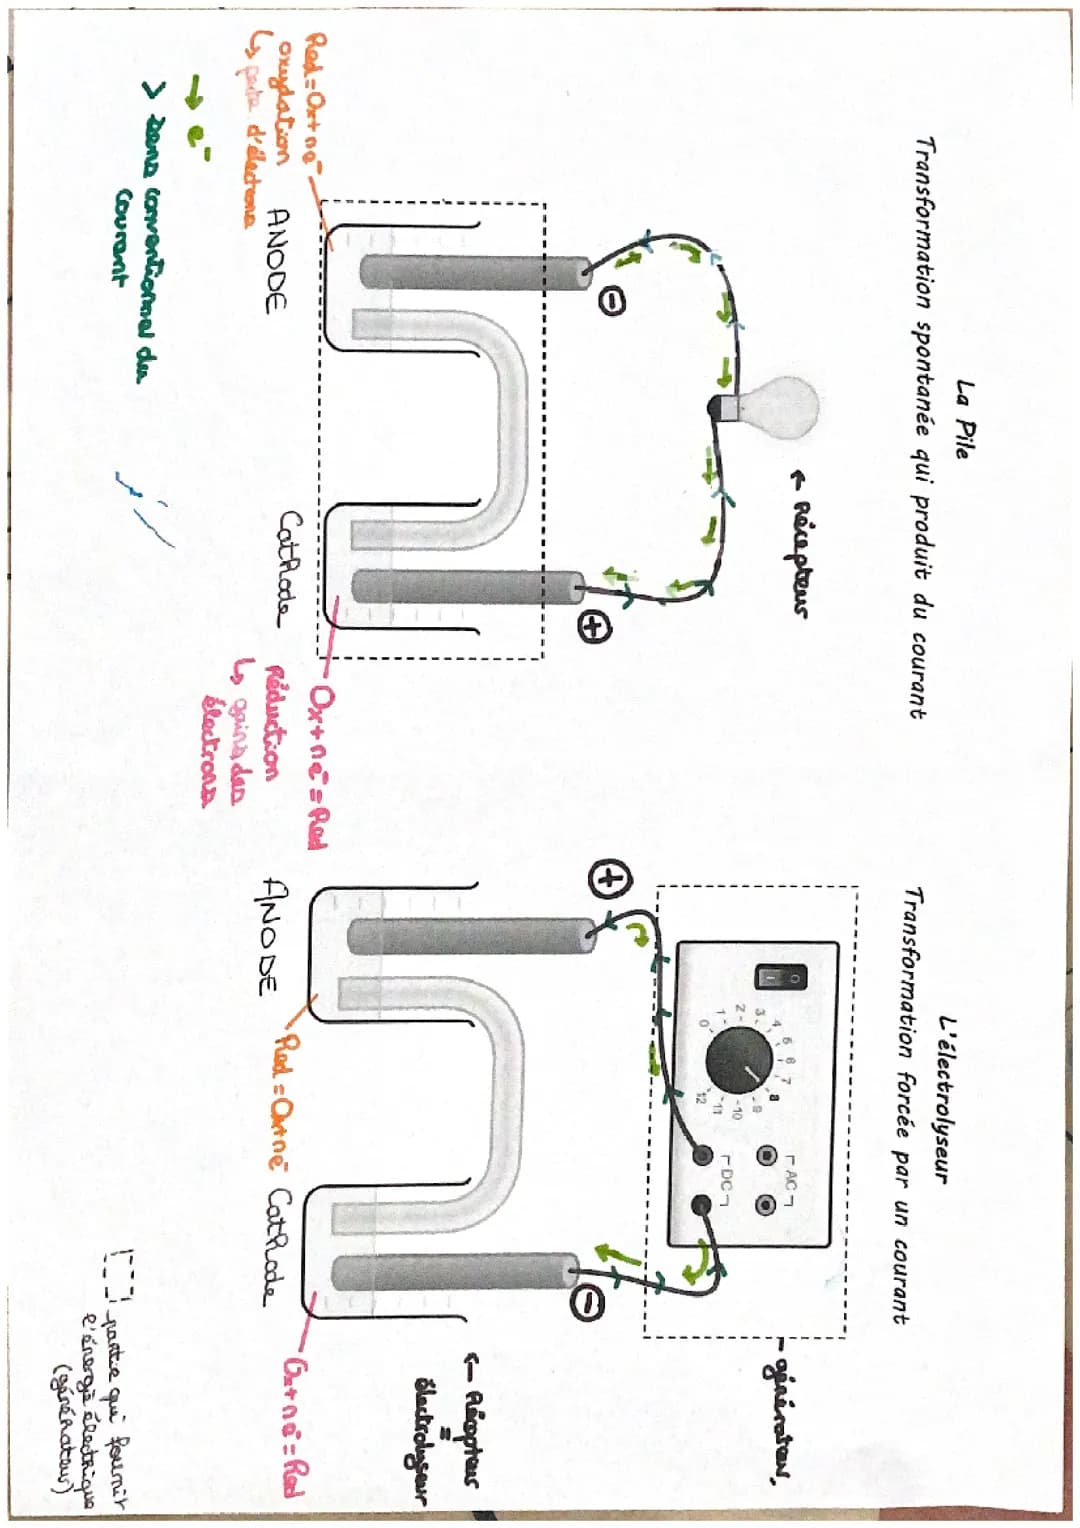 La Pile
Transformation spontanée qui produit du courant
← Récepteur
-
+
ANODE
Cathode
Red = Ox + ne⁻
oxydation
↳ perte d'électrons
Ox + ne⁻ = Red
Réduction
↳ gains des
électrons
→ e⁻
> sens conventionnel du
courant
L'électrolyseur
Transformation forcée par un courant
générateur.
0 1 2 3 4 5 6 7 8 9 10 11 12
AC
DC
+
-
← Récepteur
=
électrolyseur
ANODE
Red = Ox + ne⁻
Cathode
Ox + ne⁻ = Red
partie qui fournit
l'énergie électrique
(générateur)